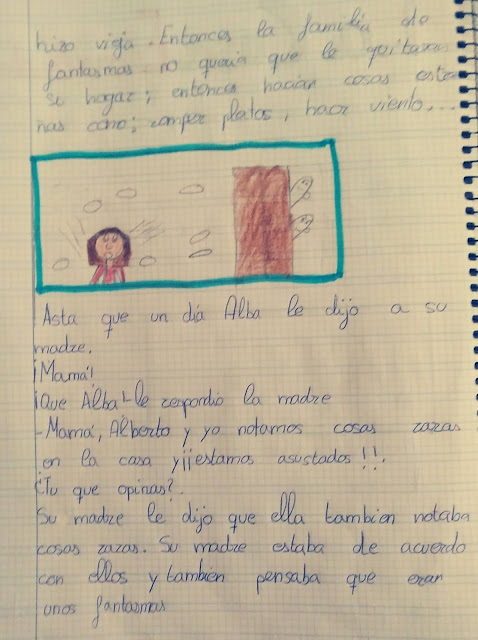 hizo vieja. Entonces la familia de
fantasmas no queria que le quitaran
su hogar; entonces hacian cosas estra
ñas como; romper platos, hacer viento,...
Asta que un día Alba le dijo a su
madre.
¡Mamá!
¡Que Alba! -le respondio la madre
-Mamá, Alberto y yo notamos cosas raras
en la casa y¡¡estamos asustados!!.
¿Tu que opinas?.
Su madre le dijo que ella tambien notaba
cosas raras. Su madre estaba de acuerdo
con ellos y tambien pensaba que eran
unos fantasmas